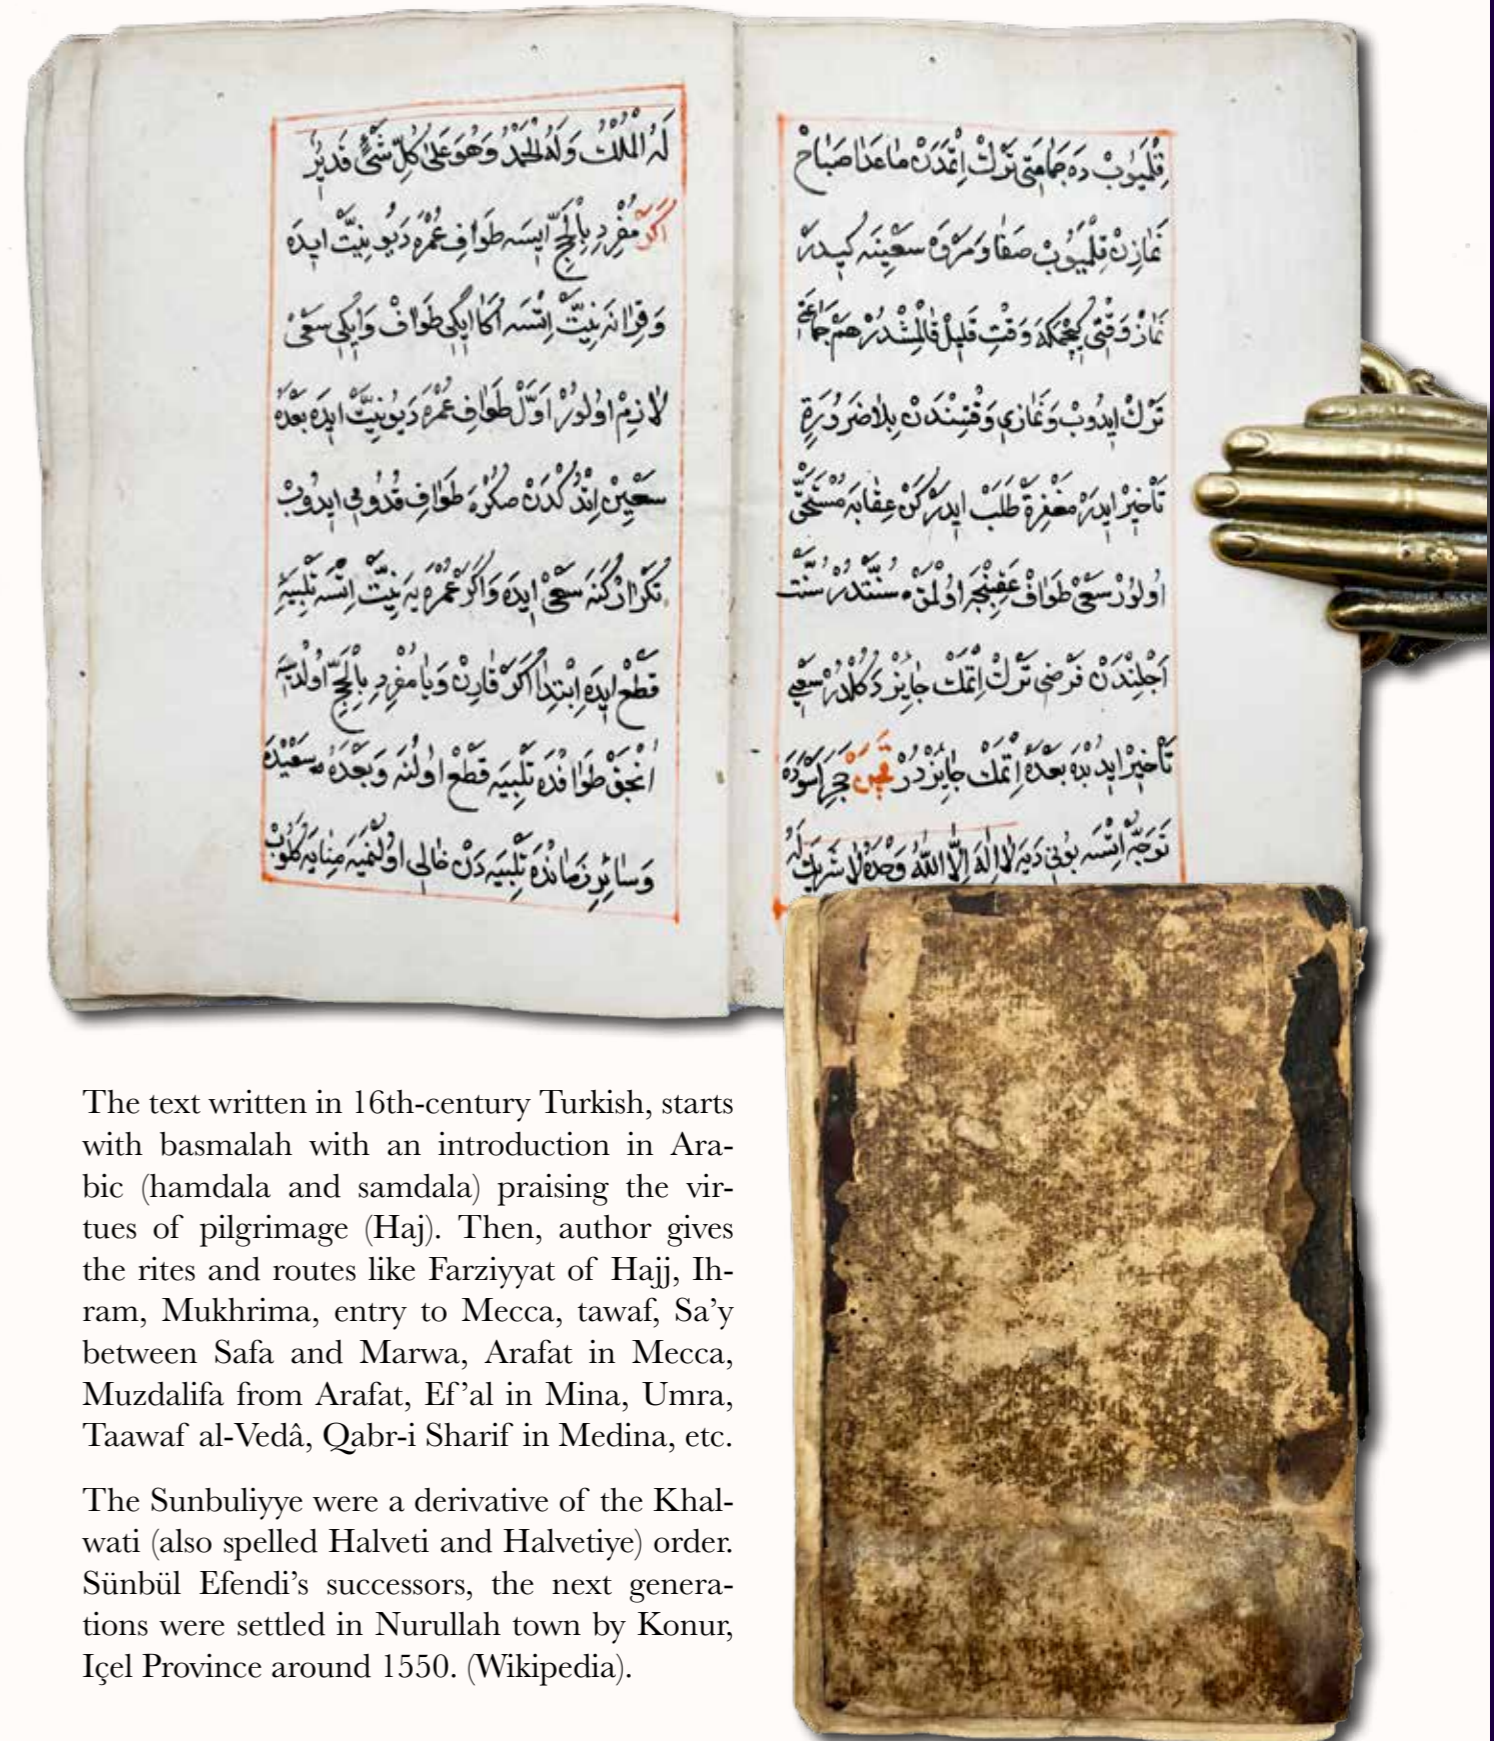 قِلْمَيُوبْ دَه جَمَاعَتِى تَرْكْ اِتْمَدَنْ مَاعَدَا صَبَاحْ
نَمَازِنْ قِلْمَيُوبْ صَفَا وَمَرْوَه سَعْيِنَه كِيدَرْ
نَمَازْ وَقْتِى كِچْمَكَه وَقْتِ قَلِيلْ قَالْمِشْدُرْ هَمْ جَمَاعَتِى
تَرْكْ ايدُوبْ وَنَمَازِى وَقْتِنْدَنْ بِلَا ضَرُورَةٍ
تَأْخِيرْ ايدَرْ مَغْفِرَةْ طَلَبْ ايدَرْكَنْ عِقَابَه مُسْتَحَقّْ
اولُورْ سَعْىْ طَوَافْ عَقِبِنْجَه اولْمَقْ سُنَّتْدُرْ سُنَّتْ
اَجْلِنْدَنْ فَرْضِى تَرْكْ اِتْمَكْ جَايِزْ دَكُلْدُرْ سَعْيِى
تَأْخِيرْ ايدُبْدَه بَعْدَهُ اِتْمَكْ جَايِزْدُرْ قَچَنْ حَجَرِ اَسْوَدَه
تَوَجُّهْ اِتْسَه بُونِى دَيَه لَا اِلَهَ اِلَّا اللهُ وَحْدَهُ لَا شَرِيكَ لَهُ
لَهُ الْمُلْكُ وَلَهُ الْحَمْدُ وَهُوَ عَلَى كُلِّ شَىْءٍ قَدِيرٌ
اَكَرْ مُفْرِدِ بِالْحَجّ ايسَه طَوَافِ عُمْرَه دَيُو نِيَّتْ ايدَه
وَقِرَانَه نِيَّتْ اِتْسَه اَكَا ايكِى طَوَافْ وَايكِى سَعْىْ
لَازِمْ اولُورْ اَوَّلْ طَوَافِ عُمْرَه دَيُو نِيَّتْ ايدَه بَعْدَهُ
سَعْيِنْ اِتْدُكْدَنْ صَكْرَه طَوَافِ قُدُومِى ايدُوبْ
تَكْرَارْ كَنَه سَعْىْ ايدَه وَاكَرْ عُمْرَه يَه نِيَّتْ اِتْسَه تَلْبِيَه يِى
قَطْعْ ايدَه اِبْتِدَا اَكَرْ قَارِنْ وَيَا مُفْرِدِ بِالْحَجّ اولْدِيسَه
اَنْجَقْ طَوَافْدَه تَلْبِيَه قَطْعْ اولُنَه وَبَعْدَهُ سَعْيْدَه
وَسَائِرِ زَمَانْدَه تَلْبِيَه دَنْ خَالِى اولْمَيَه مِنَايَه كَلُوبْ
The text written in 16th-century Turkish, starts
with basmalah with an introduction in Ara-
bic (hamdala and samdala) praising the vir-
tues of pilgrimage (Haj). Then, author gives
the rites and routes like Farziyyat of Hajj, Ih-
ram, Mukhrima, entry to Mecca, tawaf, Sa’y
between Safa and Marwa, Arafat in Mecca,
Muzdalifa from Arafat, Ef’al in Mina, Umra,
Taawaf al-Vedâ, Qabr-i Sharif in Medina, etc.
The Sunbuliyye were a derivative of the Khal-
wati (also spelled Halveti and Halvetiye) order.
Sünbül Efendi’s successors, the next genera-
tions were settled in Nurullah town by Konur,
Içel Province around 1550. (Wikipedia).